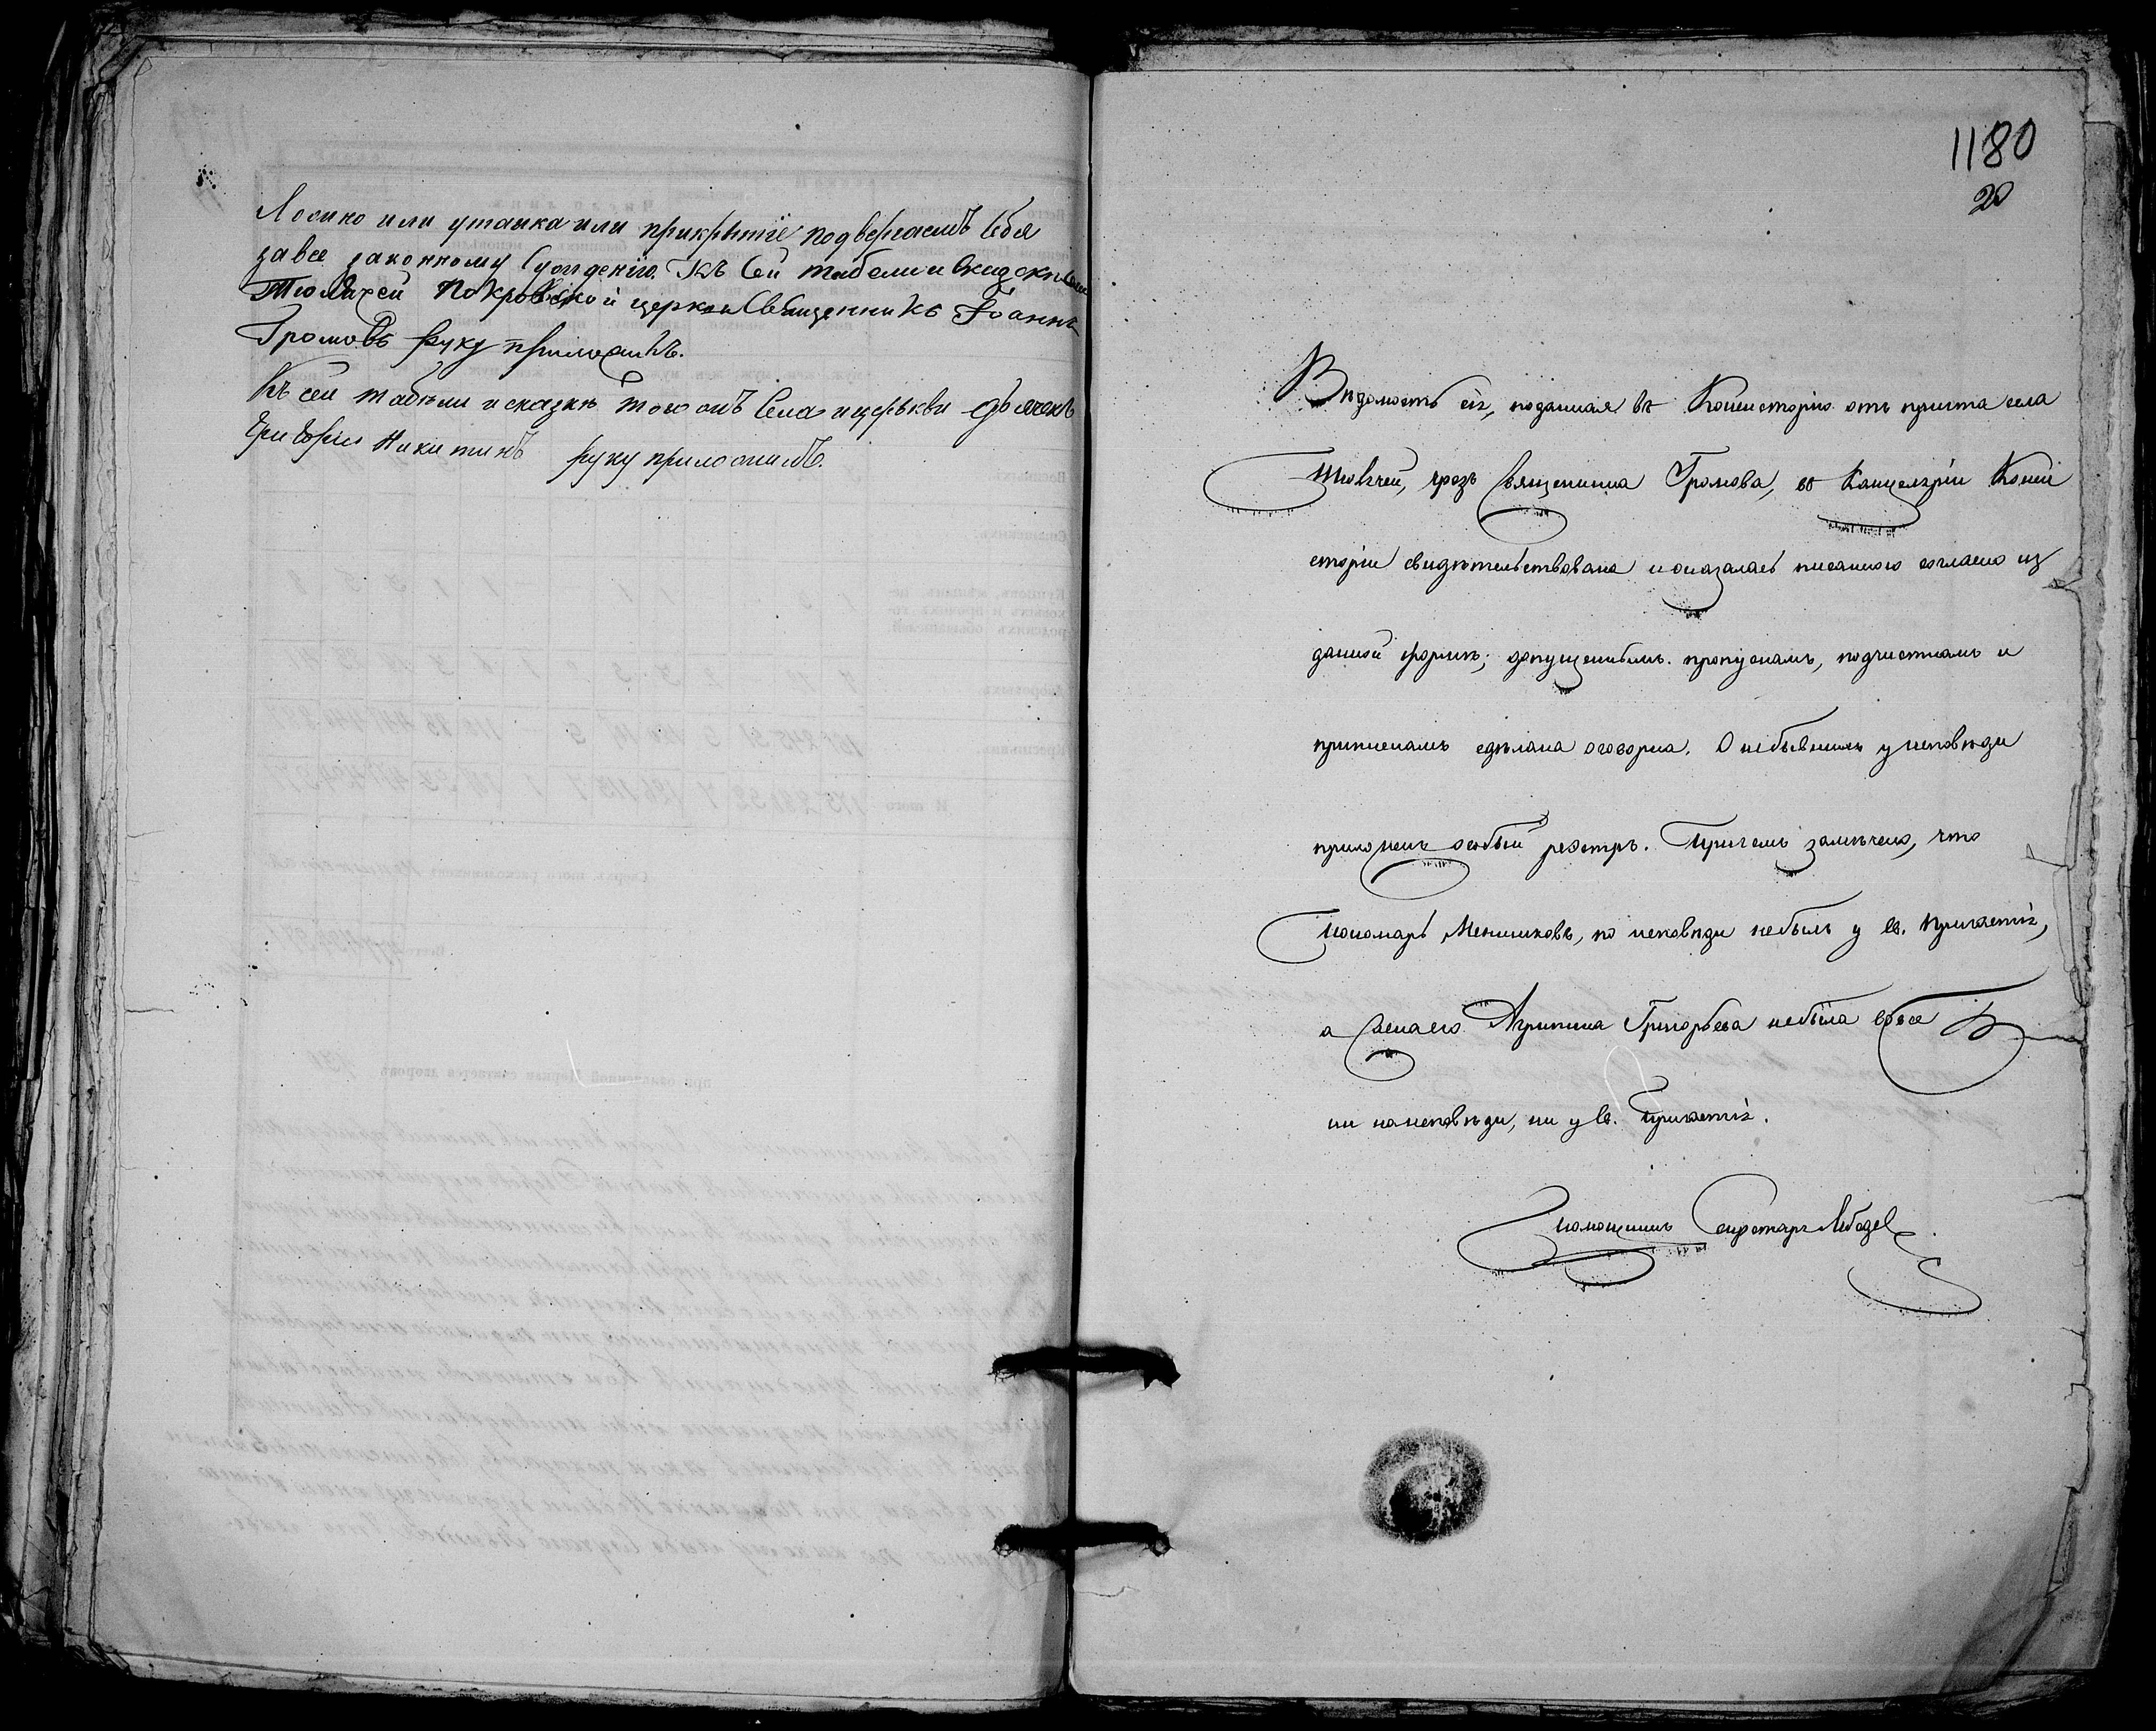 Ложно или утайка или прикрытіе подвергаемъ себя
за все законному сужденію. Къ сей табели и сказкѣ села
Тюлячей Покровской церкви Священникъ Іоаннъ
Громовъ руку приложилъ.
Къ сей табѣли и сказкѣ тогожъ села и церькви дьячекъ
Григорій Никитинъ руку приложилъ.
1180
20
Вѣдомость сія, поданная въ Консисторію отъ причта села
Тюлячей, чрезъ Священника Громова, въ Канцеляріи Конси
сторіи свидѣтельствована и оказалась писанною согласно из
данной формѣ; допущеннымъ пропускамъ, подчисткамъ и
припискамъ сдѣлана оговорка. О небывшихъ у исповѣди
приложенъ особый реэстръ. Причемъ замѣчено, что
Пономарь Меншиковъ, по исповѣди небылъ у св. Причастія,
а жена его Агрипина Григорьева небыла вовсе
ни на исповѣди, ни у св. Причастія.
Помощникъ Секретаря Лебедев